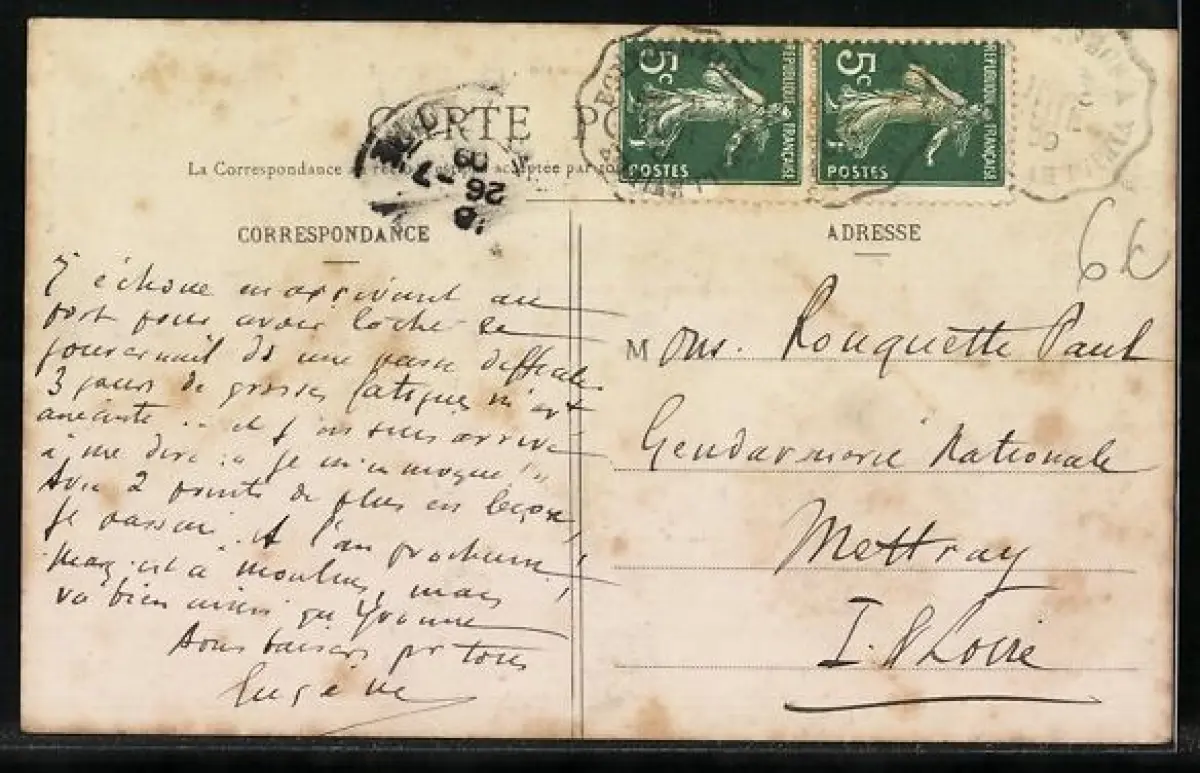 CARTE PO
La Correspondance au recto acceptée par to
5c REPUBLIQUE FRANÇAISE POSTES
5c REPUBLIQUE FRANÇAISE POSTES
26 -7 09
CORRESPONDANCE
J'échoue en arrivant au
port pour avoir lâché le
gouvernail ds une passe difficile.
3 jours de grosses fatigues m'ont
anéanti .. et j'en suis arrivé
à me dire : " je m'en moque! "
Avec 2 points de plus en leçon,
je passais. A l'an prochain!
Marg. est à Moulins, mais
va bien ainsi que Yvonne
Bons baisers pr tous
Eugène
ADRESSE
6€
Mons. Rouquette Paul
Gendarmerie Nationale
Mettray
I. & Loire